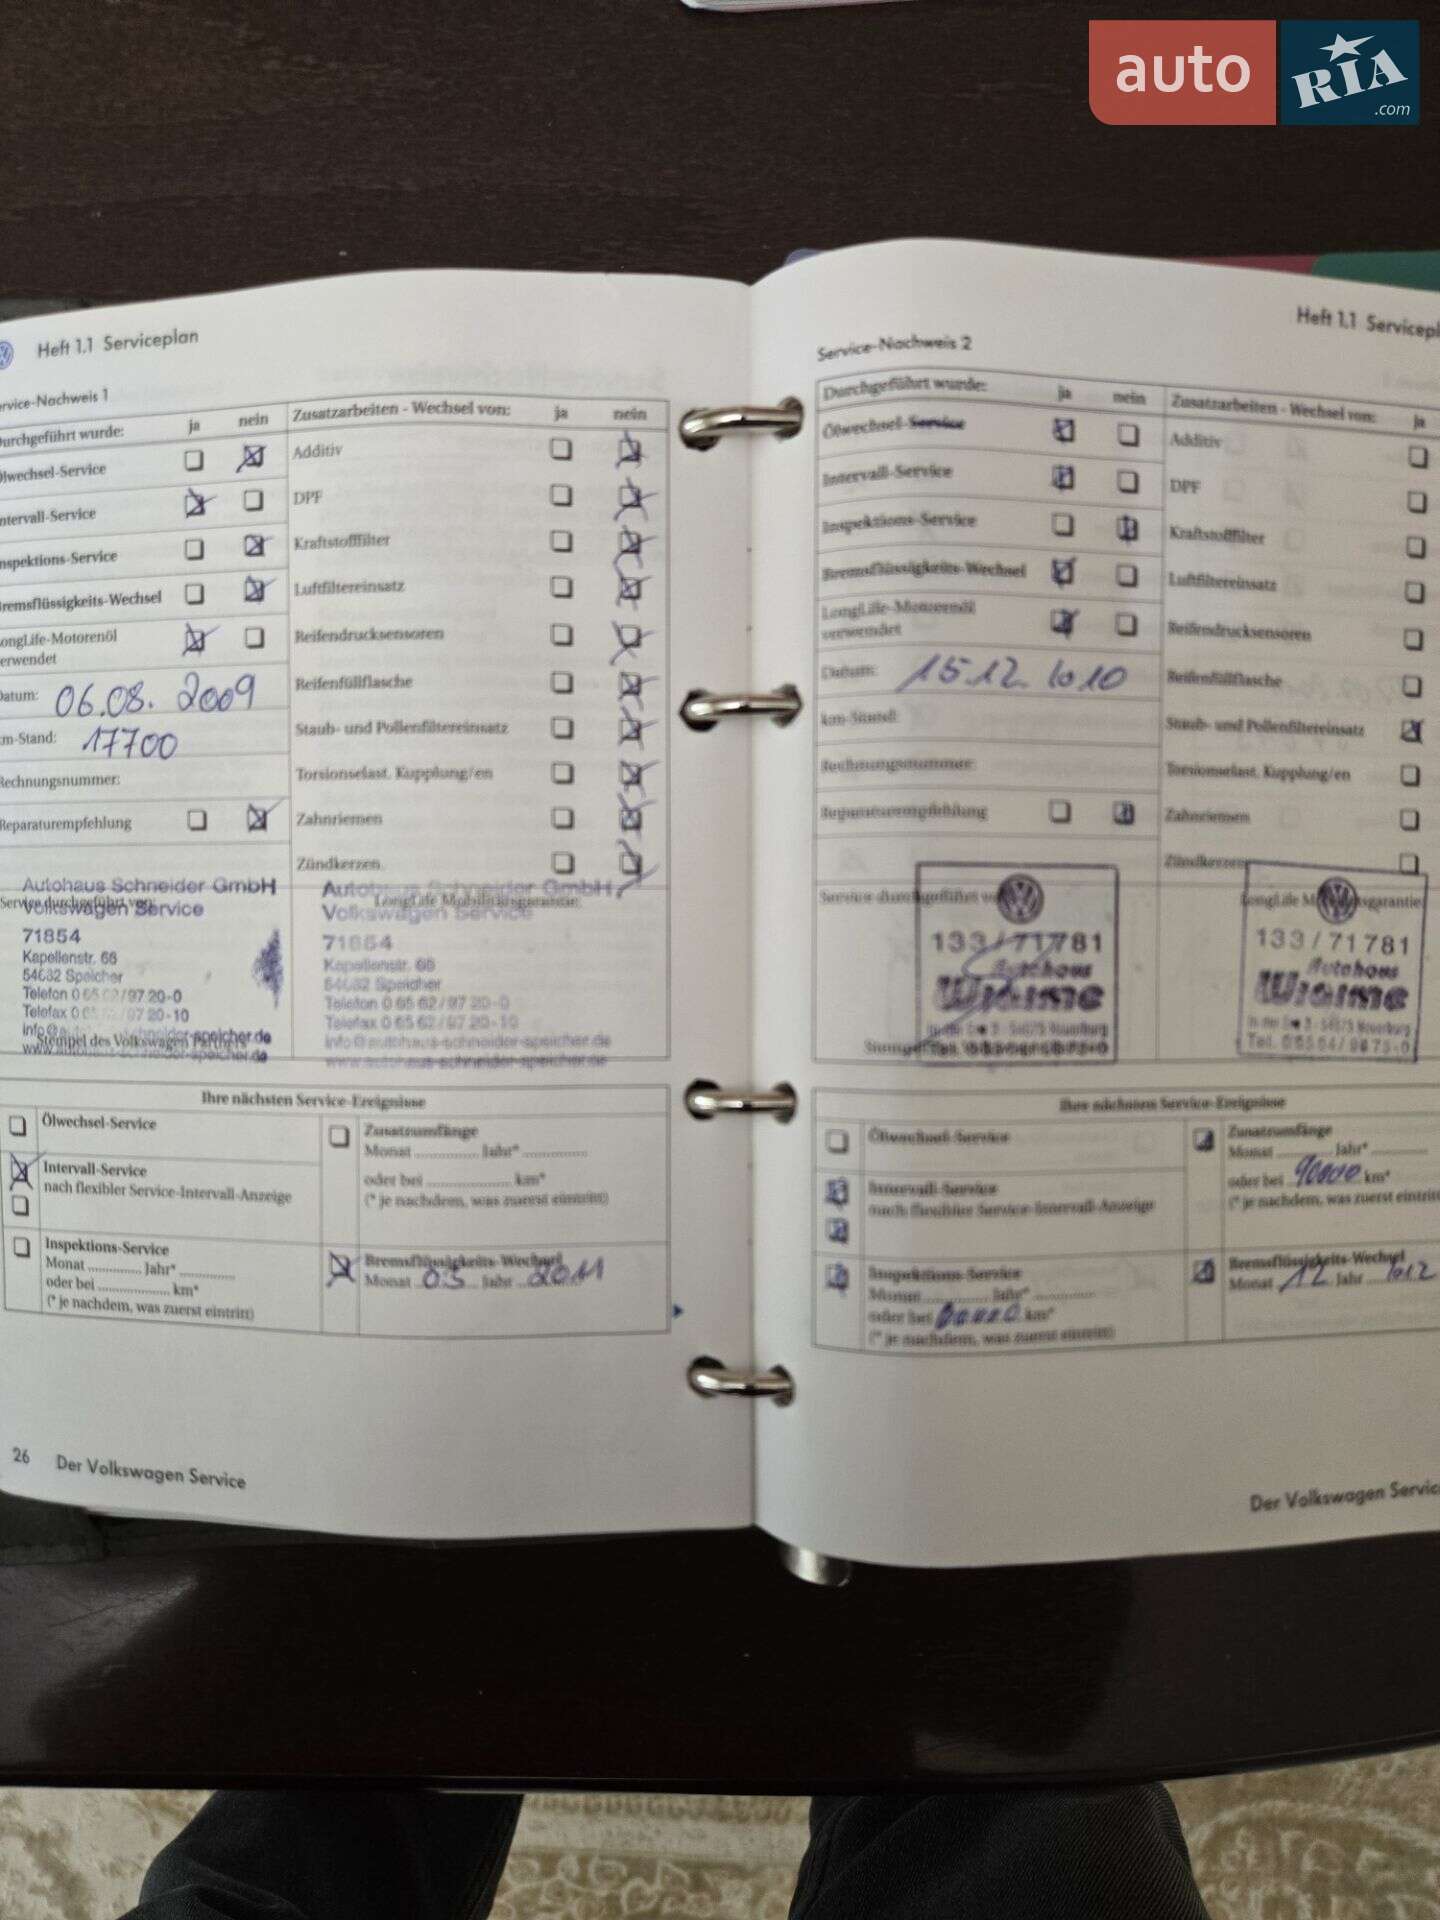 auto
RIA
.com
Heft 1.1 Serviceplan
rvice-Nachweis 1
urchgeführt wurde: ja nein
Zusatzarbeiten - Wechsel von: ja nein
lwechsel-Service
ntervall-Service
nspektions-Service
remsflüssigkeits-Wechsel
ongLife-Motorenöl
erwendet
atum: 06.08. 2009
m-Stand: 17700
echnungsnummer:
eparaturempfehlung
Additiv
DPF
Kraftstofffilter
Luftfiltereinsatz
Reifendrucksensoren
Reifenfüllflasche
Staub- und Pollenfiltereinsatz
Torsionselast. Kupplung/en
Zahnriemen
Zündkerzen
Autohaus Schneider GmbH
Service durchgeführt von:
Volkswagen Service
71854
Kapellenstr. 66
54662 Speicher
Telefon 0 65 62/97 20-0
Telefax 0 6 /97 20-10
Stempel des Volkswagen Partners
Autohaus Schneider GmbH
LongLife Mobilitätsgarantie:
Volkswagen Service
71854
Kapellenstr. 66
54662 Speicher
Telefon 0 65 62/97 20-0
Telefax 0 65 62/97 20-10
info@autohaus-schneider-speicher.de
www.autohaus-schneider-speicher.de
Ihre nächsten Service-Ereignisse
Ölwechsel-Service
Intervall-Service
nach flexibler Service-Intervall-Anzeige
Inspektions-Service
Monat .............. Jahr* ..............
oder bei .................. km*
(* je nachdem, was zuerst eintritt)
Zusatzumfänge
Monat .............. Jahr* ................
oder bei ...................... km*
(* je nachdem, was zuerst eintritt)
Bremsflüssigkeits-Wechsel
Monat 05 Jahr 2011
26 Der Volkswagen Service
Heft 1.1 Servicepl
Service-Nachweis 2
Durchgeführt wurde: ja nein
Zusatzarbeiten - Wechsel von: ja
Ölwechsel-Service
Intervall-Service
Inspektions-Service
Bremsflüssigkeits-Wechsel
LongLife-Motorenöl
verwendet
Datum: 15.12. 2010
km-Stand:
Rechnungsnummer:
Reparaturempfehlung
Additiv
DPF
Kraftstofffilter
Luftfiltereinsatz
Reifendrucksensoren
Reifenfüllflasche
Staub- und Pollenfiltereinsatz
Torsionselast. Kupplung/en
Zahnriemen
Zündkerzen
Service durchgeführt
133/71781
Autohaus
133/71781
Autohaus
Ihre nächsten Service-Ereignisse
Ölwechsel-Service
Intervall-Service
nach flexibler Service-Intervall-Anzeige
Inspektions-Service
Monat .............. Jahr* ..............
oder bei km*
(* je nachdem, was zuerst eintritt)
Zusatzumfänge
Monat .............. Jahr* ..............
oder bei 90000 km*
(* je nachdem, was zuerst eintritt
Bremsflüssigkeits-Wechsel
Monat 12 Jahr 2012
Der Volkswagen Servic